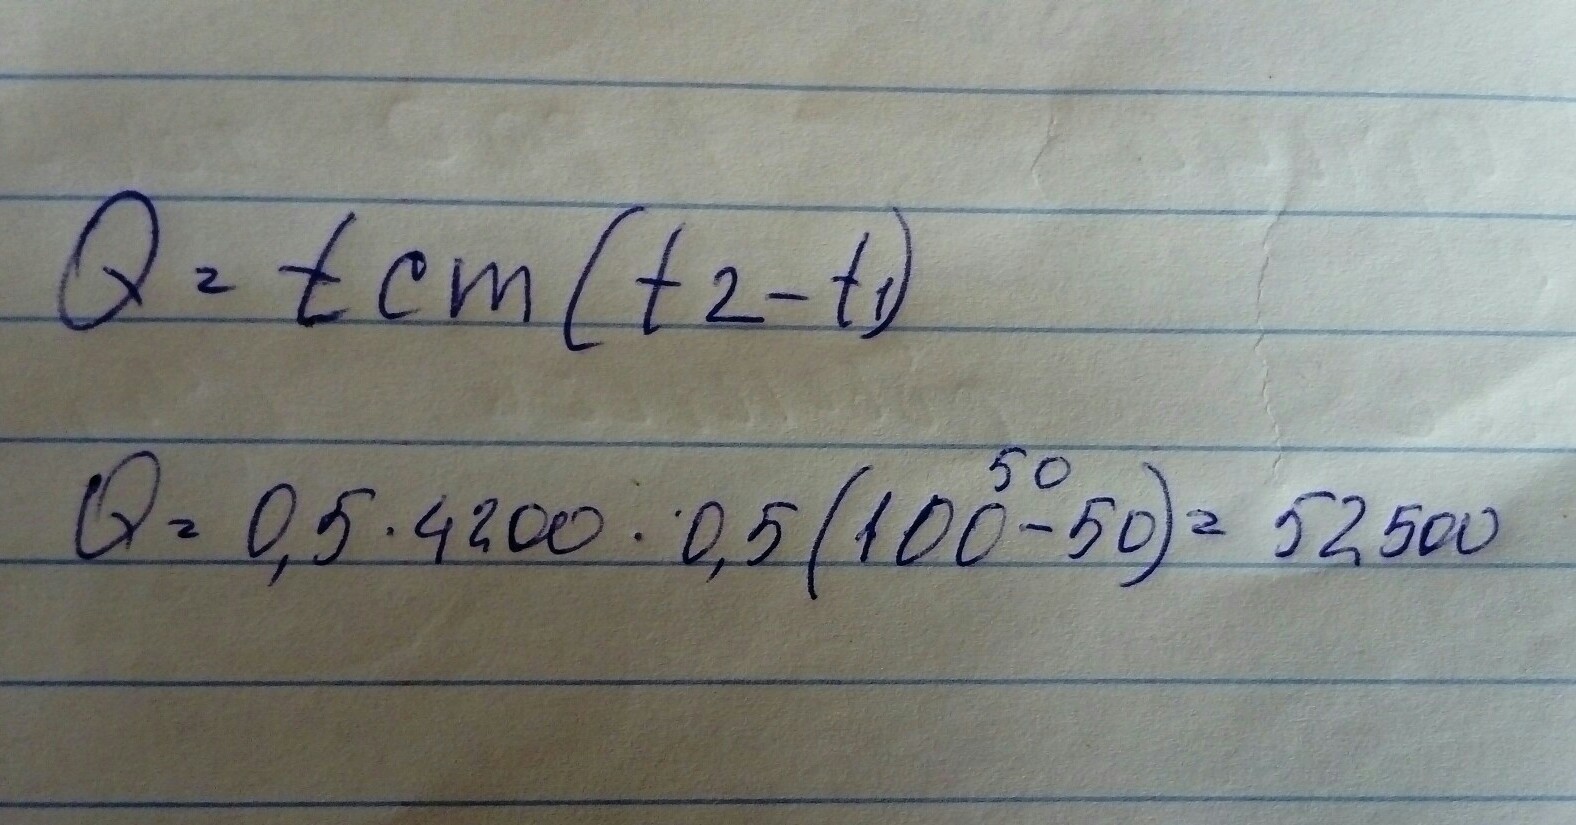 Q = t c m (t2 - t1)
Q = 0,5 · 4200 · 0,5 (100 - 50) = 52500
50